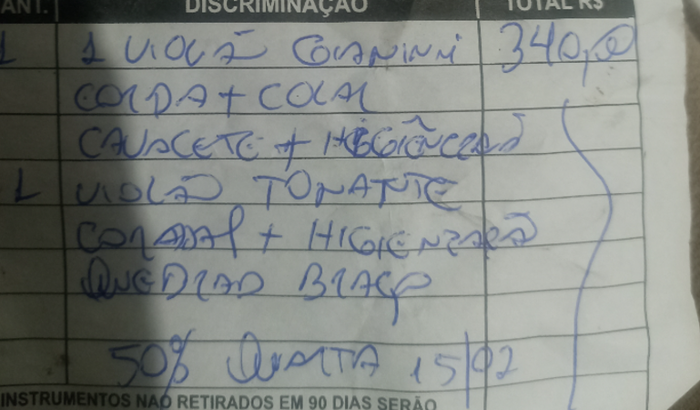 ANT. DISCRIMINAÇÃO TOTAL R$
1 1 VIOLÃO GIANINNI 340,00
CORDA + COLAR
CAVALETE + HIGIÊNIZAÇÃO
1 VIOLÃO TONANTE
+ HIGIENIZAÇÃO
QUEBRADO BRAÇO
50% QUARTA 15/02
INSTRUMENTOS NÃO RETIRADOS EM 90 DIAS SERÃO